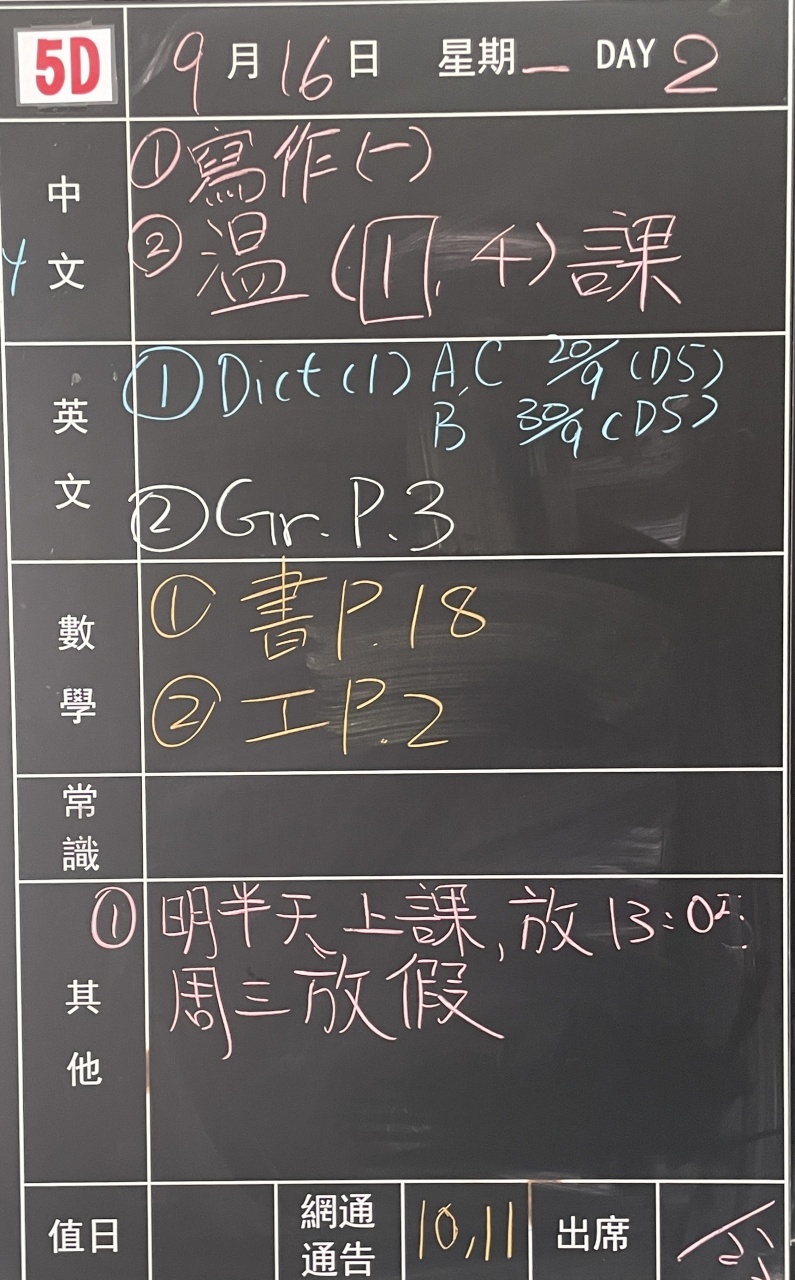 5D 9月16日 星期一 DAY 2
中文
①寫作(一)
②温(1, 4)課
英文
①Dict(1) A,C 20/9 (D5)
B 30/9 (D5)
②Gr. P.3
數學
①書P.18
②工P.2
常識
其他
①明半天上課,放13:02
周三放假
值日 網通通告 10,11 出席